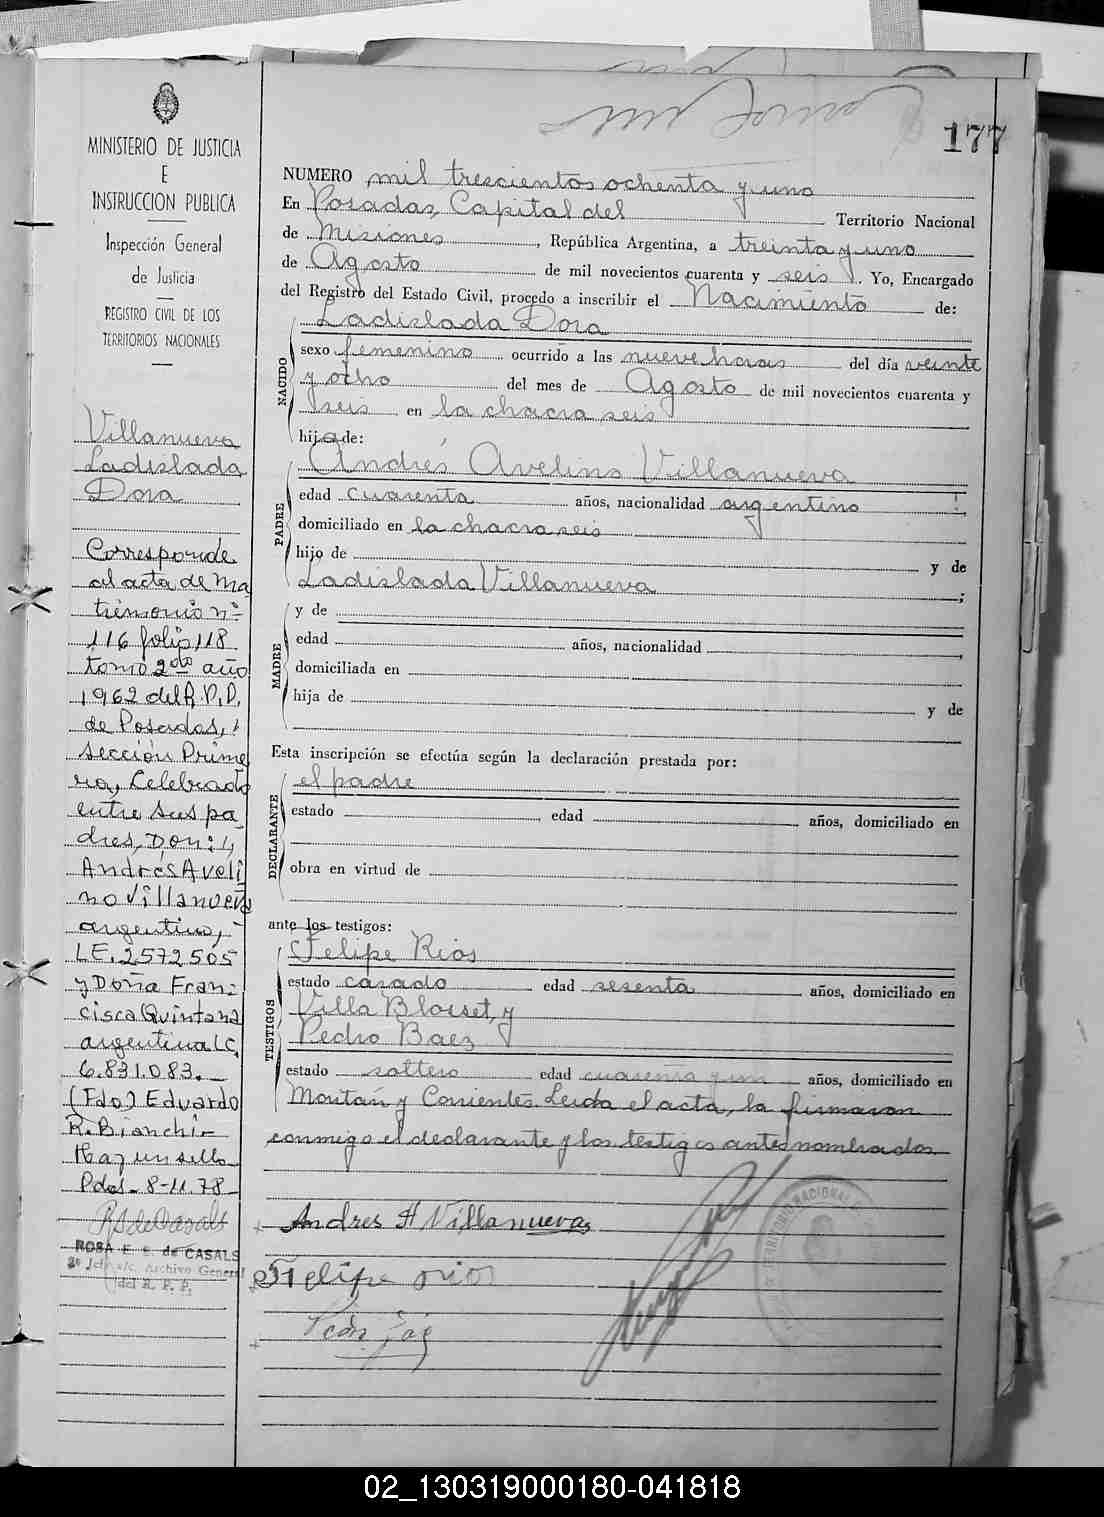 177
MINISTERIO DE JUSTICIA
E
INSTRUCCION PUBLICA
Inspección General
de Justicia
REGISTRO CIVIL DE LOS
TERRITORIOS NACIONALES
Villanueva
Ladislada
Dora
Corresponde
al acta de Ma
trimonio nº
116 folio 118
tomo 2do año
1962 del R.P.P.
de Posadas,
sección Prime
ra, Celebrado
entre sus pa
dres, Don:
Andrés Aveli
no Villanueva
argentino,
L.E. 2572505
y Doña Fran
cisca Quintana
argentina L.C.
6.831.083._
(Fdo) Eduardo
R. Bianchi-
Hay un sello
Pdas- 8-11.78-
ROSA E. E. de CASALS
2º Jefe a/c. Archivo General
del R. P. P.
NUMERO mil trescientos ochenta y uno
En Posadas, Capital del Territorio Nacional
de Misiones, República Argentina, a treinta y uno
de Agosto de mil novecientos cuarenta y seis. Yo, Encargado
del Registro del Estado Civil, procedo a inscribir el Nacimiento de:
NACIDO
Ladislada Dora
sexo femenino ocurrido a las nueve horas del día veinte
y ocho del mes de Agosto de mil novecientos cuarenta y
seis en la chacra seis
hija de:
PADRE
Andrés Avelino Villanueva
edad cuarenta años, nacionalidad argentino
domiciliado en la chacra seis
hijo de y de
Ladislada Villanueva ;
MADRE
y de
edad años, nacionalidad
domiciliada en
hija de y de
Esta inscripción se efectúa según la declaración prestada por:
DECLARANTE
el padre
estado , edad años, domiciliado en
obra en virtud de
ante los testigos:
TESTIGOS
Felipe Rios
estado casado edad sesenta años, domiciliado en
Villa Blosset, y
Pedro Baez
estado soltero edad cuarenta y un años, domiciliado en
Maitán y Corrientes. Leida el acta, la firmaron
conmigo el declarante y los testigos antes nombrados
Andres A Villanueva
Felipe rios
02_130319000180-041818